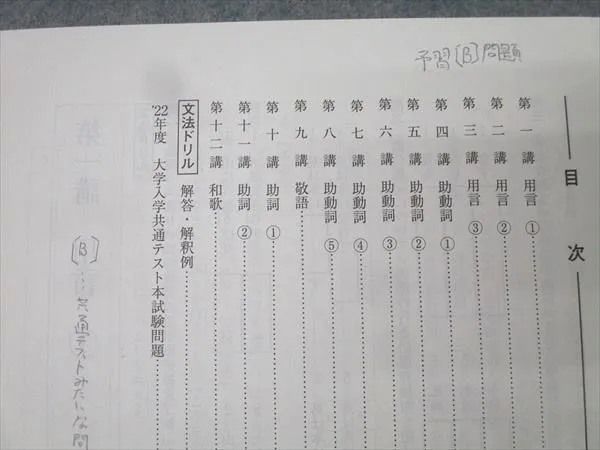 予習〔B〕問題
目次
第一講 用言①
第二講 用言②
第三講 用言③
第四講 助動詞①
第五講 助動詞②
第六講 助動詞③
第七講 助動詞④
第八講 助動詞⑤
第九講 敬語
第十講 助詞①
第十一講 助詞②
第十二講 和歌
文法ドリル 解答・解釈例
'22年度 大学入学共通テスト本試験問題
〔B〕…共通テストみたいな問
第一講